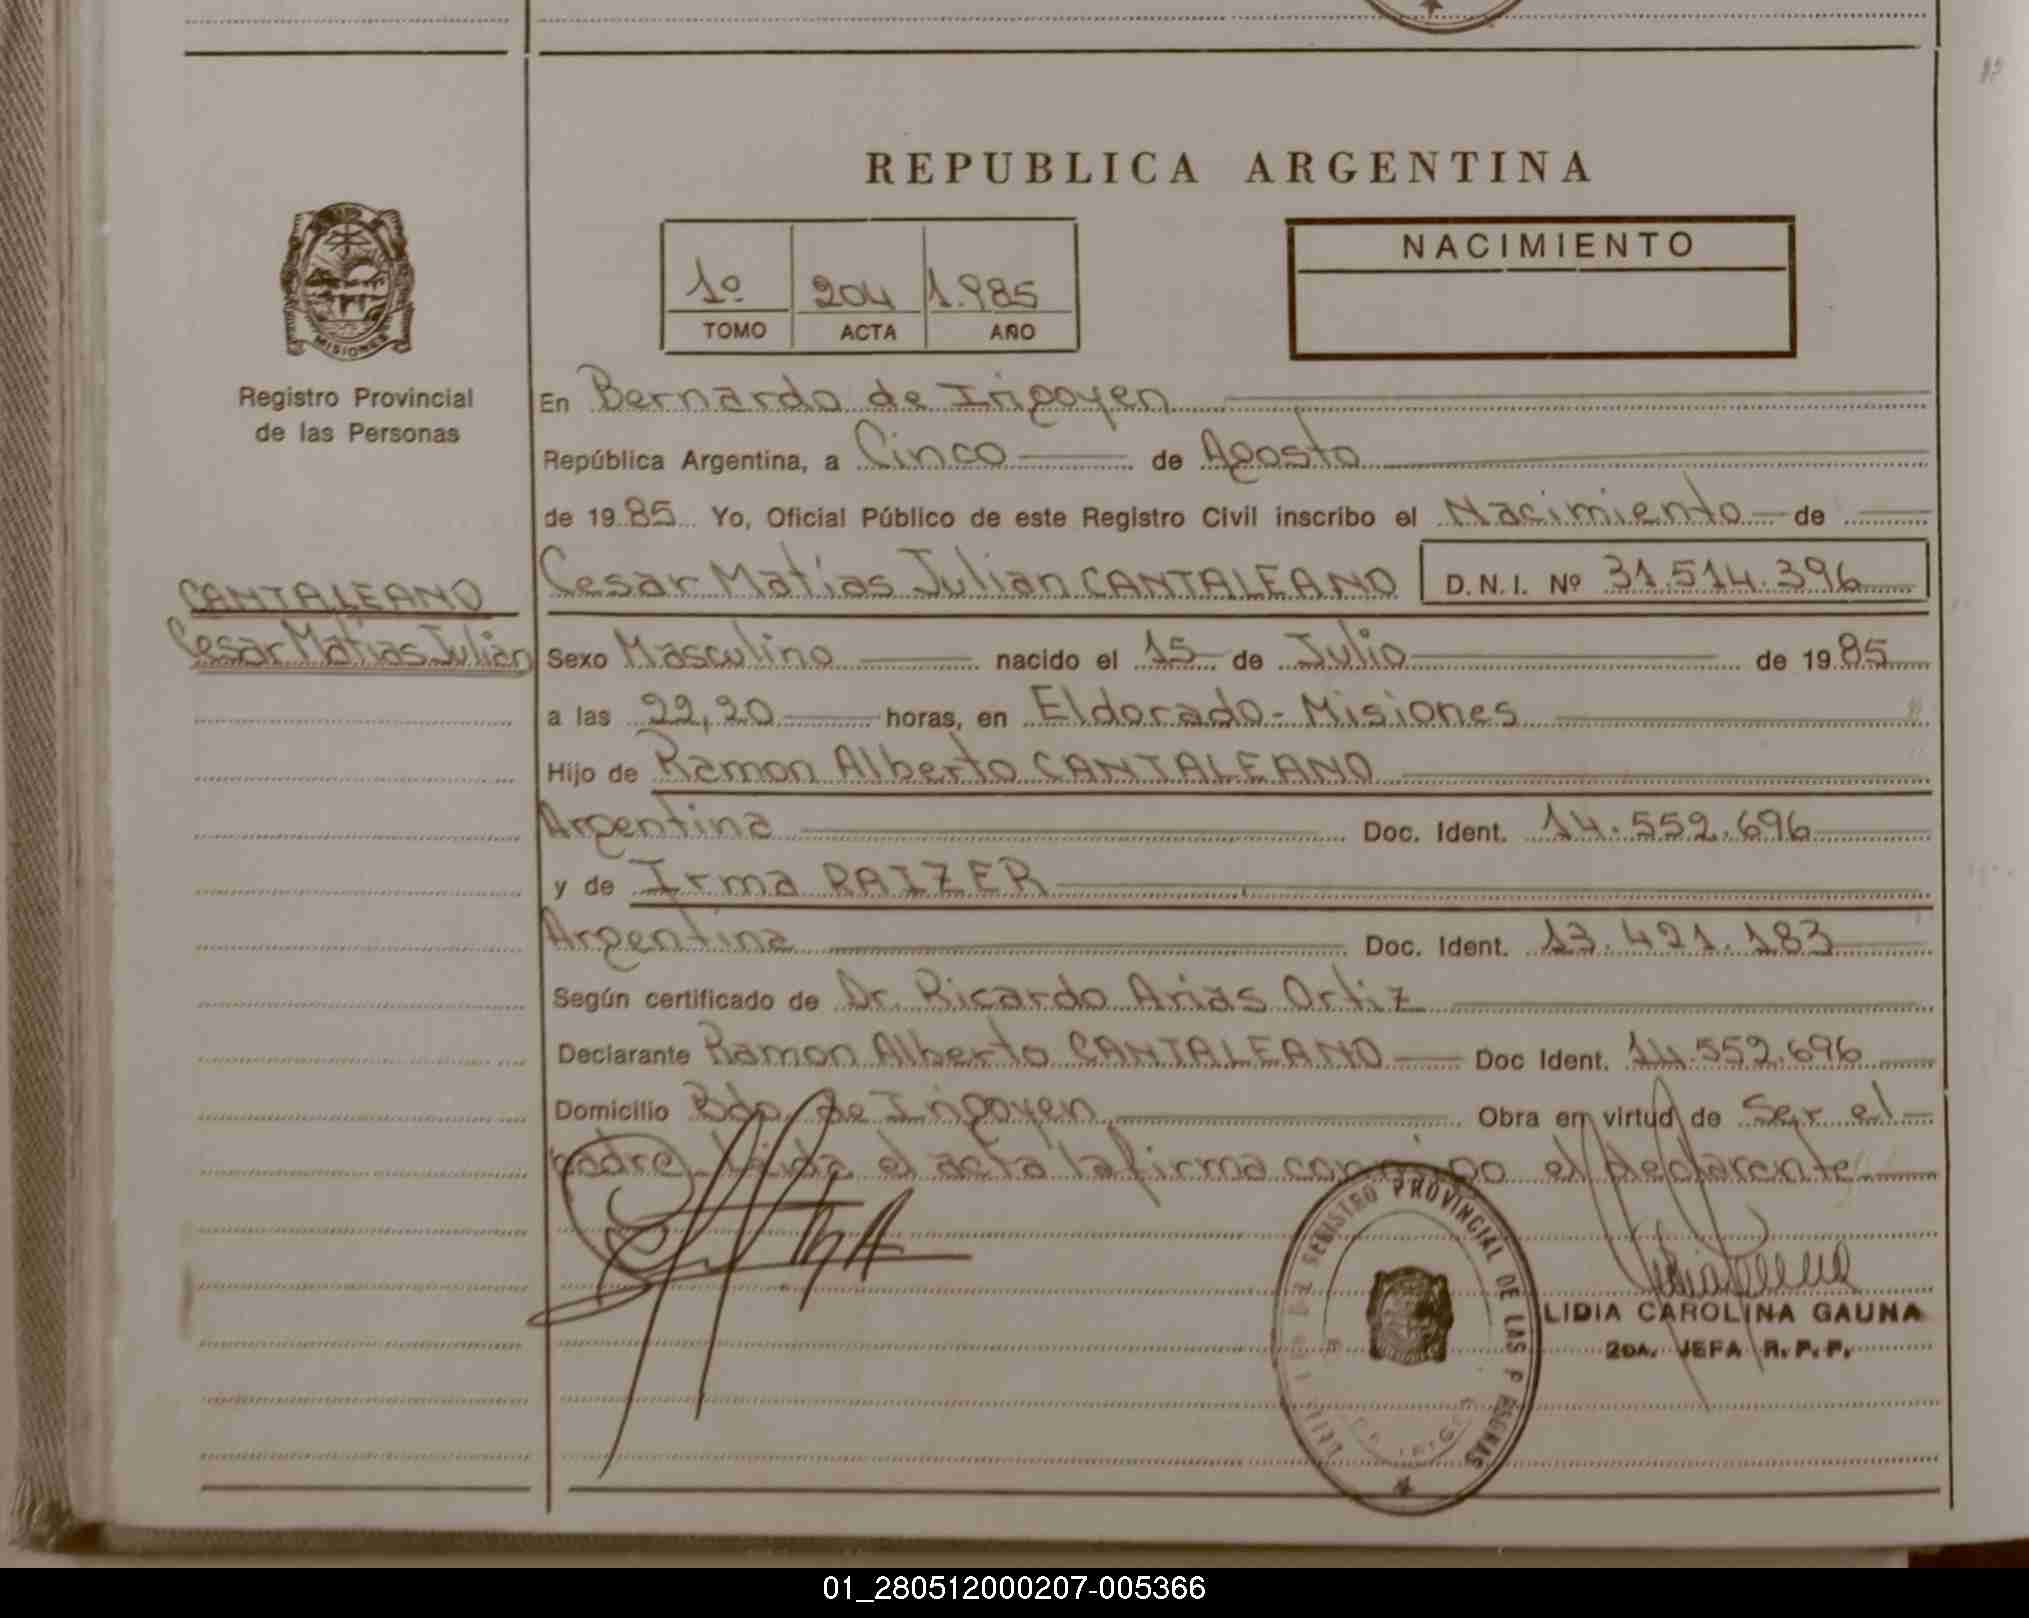 REPUBLICA ARGENTINA
1º 204 1.985
TOMO ACTA AÑO
NACIMIENTO
MISIONES
Registro Provincial
de las Personas
CANTALEANO
Cesar Matías Julián
En Bernardo de Irigoyen
República Argentina, a Cinco de Agosto
de 19 85 Yo, Oficial Público de este Registro Civil inscribo el Nacimiento de
Cesar Matías Julián CANTALEANO D.N.I. Nº 31.514.396
Sexo Masculino nacido el 15 de Julio de 19 85
a las 22,20 horas, en Eldorado - Misiones
Hijo de Ramon Alberto CANTALEANO
Argentina Doc. Ident. 14.552.696
y de Irma RAIZER
Argentina Doc. Ident. 13.421.183
Según certificado de Dr. Ricardo Arias Ortiz
Declarante Ramon Alberto CANTALEANO Doc Ident. 14.552.696
Domicilio Bdo. de Irigoyen Obra en virtud de Ser el
padre. Leída el acta la firma conmigo el declarante
REGISTRO PROVINCIAL DE LAS P RSONAS
LIDIA CAROLINA GAUNA
2DA. JEFA R. P. P.
01_280512000207-005366